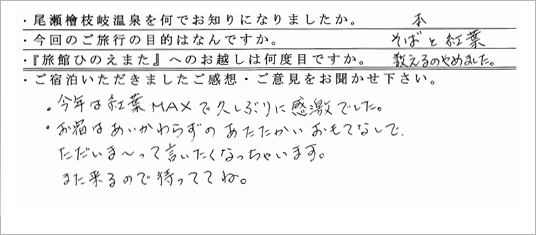 ・尾瀬檜枝岐温泉を何でお知りになりましたか。 本
・今回のご旅行の目的はなんですか。 そばと紅葉
・『旅館ひのえまた』へのお越しは何度目ですか。 数えるのやめました。
・ご宿泊いただきましたご感想・ご意見をお聞かせ下さい。
・今年は紅葉MAXで久しぶりに感激でした。
・お宿はあいかわらずの あたたかい おもてなしで、
ただいま〜って言いたくなっちゃいます。
また来るので待っててね。